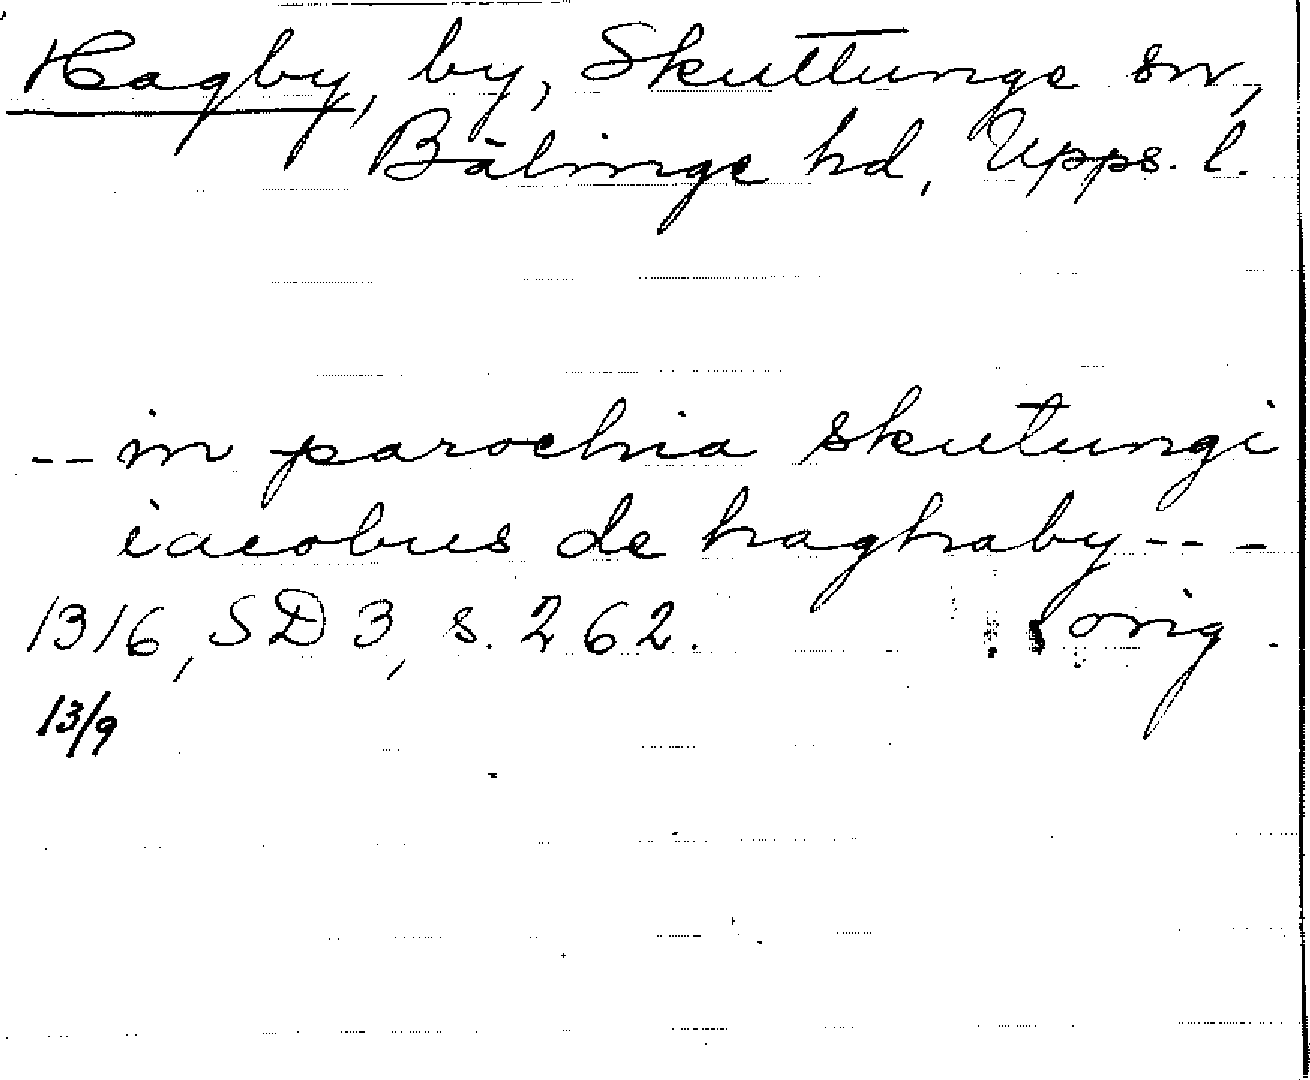 Hagby, by, Skuttunge sn,
Bälinge hd, Upps. l.
-- in parochia skutungi
iacobus de haghaby ---
1316, SD 3, s. 262. orig.
13/9